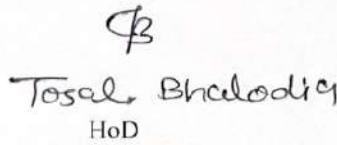 Tosal Bhalodia
HoD